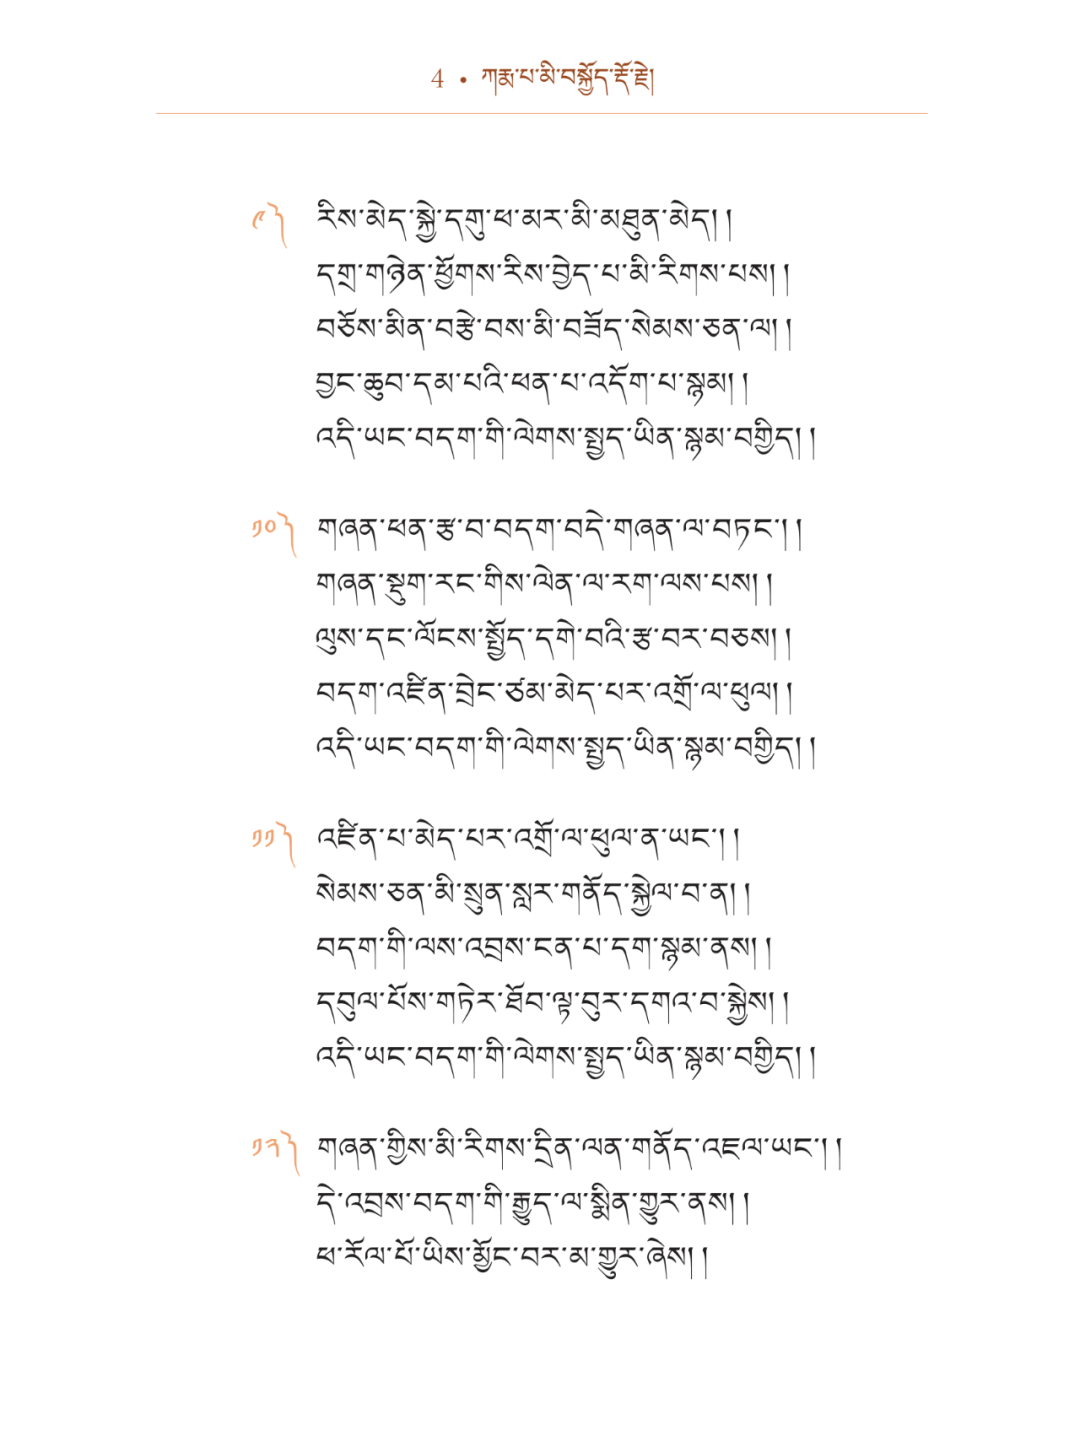 4 • ཀརྨ་པ་མི་བསྐྱོད་རྡོ་རྗེ།
༩༽ རིས་མེད་སྐྱེ་དགུ་ཕ་མར་མི་མཐུན་མེད། །
དགྲ་གཉེན་ཕྱོགས་རིས་བྱེད་པ་མི་རིགས་པས། །
བཅོས་མིན་བརྩེ་བས་མི་བཟོད་སེམས་ཅན་ལ། །
བྱང་ཆུབ་དམ་པའི་ཕན་པ་འདོག་པ་སྙམ། །
འདི་ཡང་བདག་གི་ལེགས་སྤྱད་ཡིན་སྙམ་བགྱིད། །
༡༠༽ གཞན་ཕན་རྩ་བ་བདག་བདེ་གཞན་ལ་བཏང་། །
གཞན་སྡུག་རང་གིས་ལེན་ལ་རག་ལས་པས། །
ལུས་དང་ལོངས་སྤྱོད་དགེ་བའི་རྩ་བར་བཅས། །
བདག་འཛིན་བྲེང་ཙམ་མེད་པར་འགྲོ་ལ་ཕུལ། །
འདི་ཡང་བདག་གི་ལེགས་སྤྱད་ཡིན་སྙམ་བགྱིད། །
༡༡༽ འཛིན་པ་མེད་པར་འགྲོ་ལ་ཕུལ་ན་ཡང་། །
སེམས་ཅན་མི་སྲུན་སླར་གནོད་སྐྱེལ་བ་ན། །
བདག་གི་ལས་འབྲས་ངན་པ་དག་སྙམ་ནས། །
དབུལ་པོས་གཏེར་ཐོབ་ལྟ་བུར་དགའ་བ་སྐྱེས། །
འདི་ཡང་བདག་གི་ལེགས་སྤྱད་ཡིན་སྙམ་བགྱིད། །
༡༢༽ གཞན་གྱིས་མི་རིགས་དྲིན་ལན་གནོད་འཇལ་ཡང་། །
དེ་འབྲས་བདག་གི་རྒྱུད་ལ་སྨིན་གྱུར་ནས། །
ཕ་རོལ་པོ་ཡིས་མྱོང་བར་མ་གྱུར་ཞེས། །